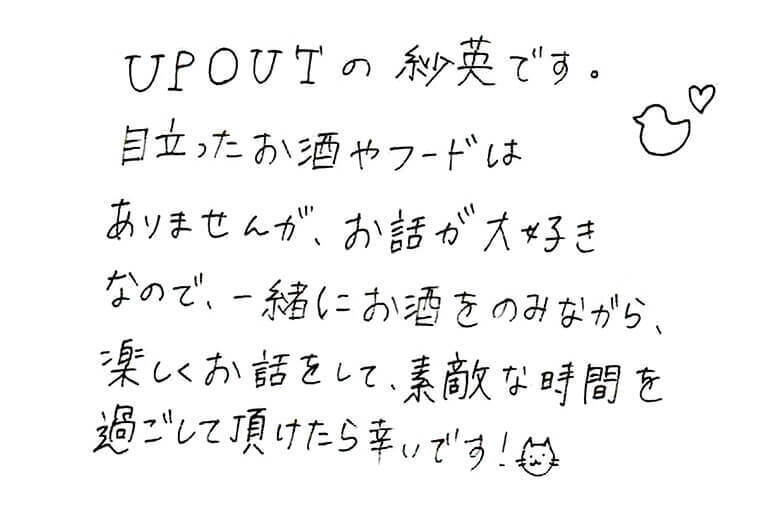 UPOUTの 紗英です。
目立ったお酒やフードは
ありませんが、お話が大好き
なので、一緒にお酒をのみながら、
楽しくお話をして、素敵な時間を
過ごして頂けたら幸いです!